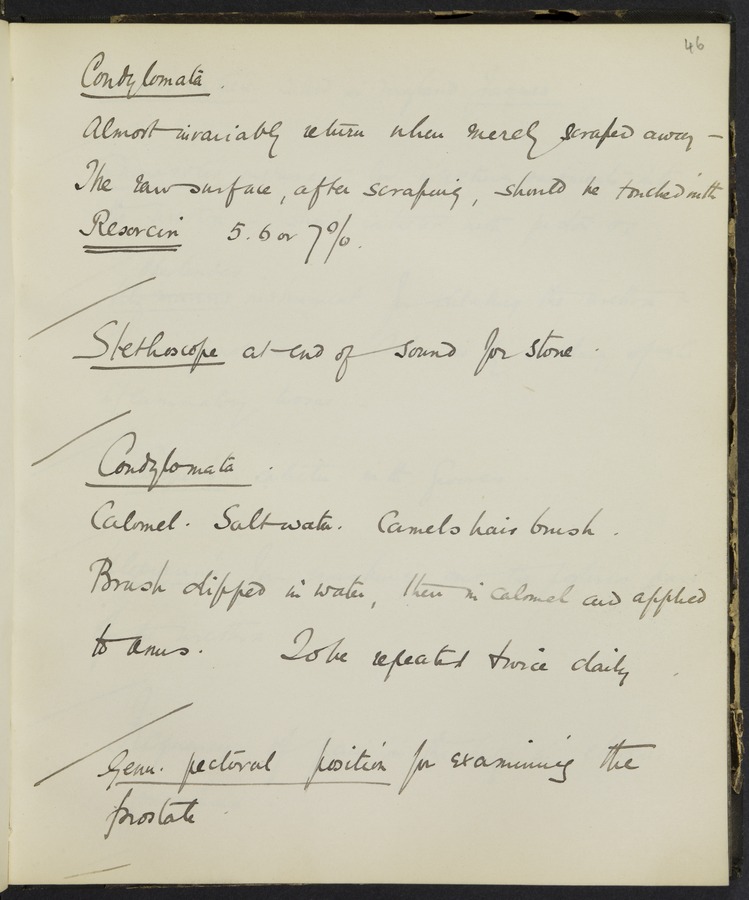 46
Condylomata.
Almost invariably return when merely scraped away -
The raw surface, after scraping, should be touched with
Resorcin 5. 6 or 7%.
Stethoscope at end of sound for stone.
Condylomata.
Calomel. Salt water. Camels hair brush.
Brush dipped in water, then in calomel and applied
to anus. To be repeated twice daily.
Genu. pectoral position for examining the
prostate.